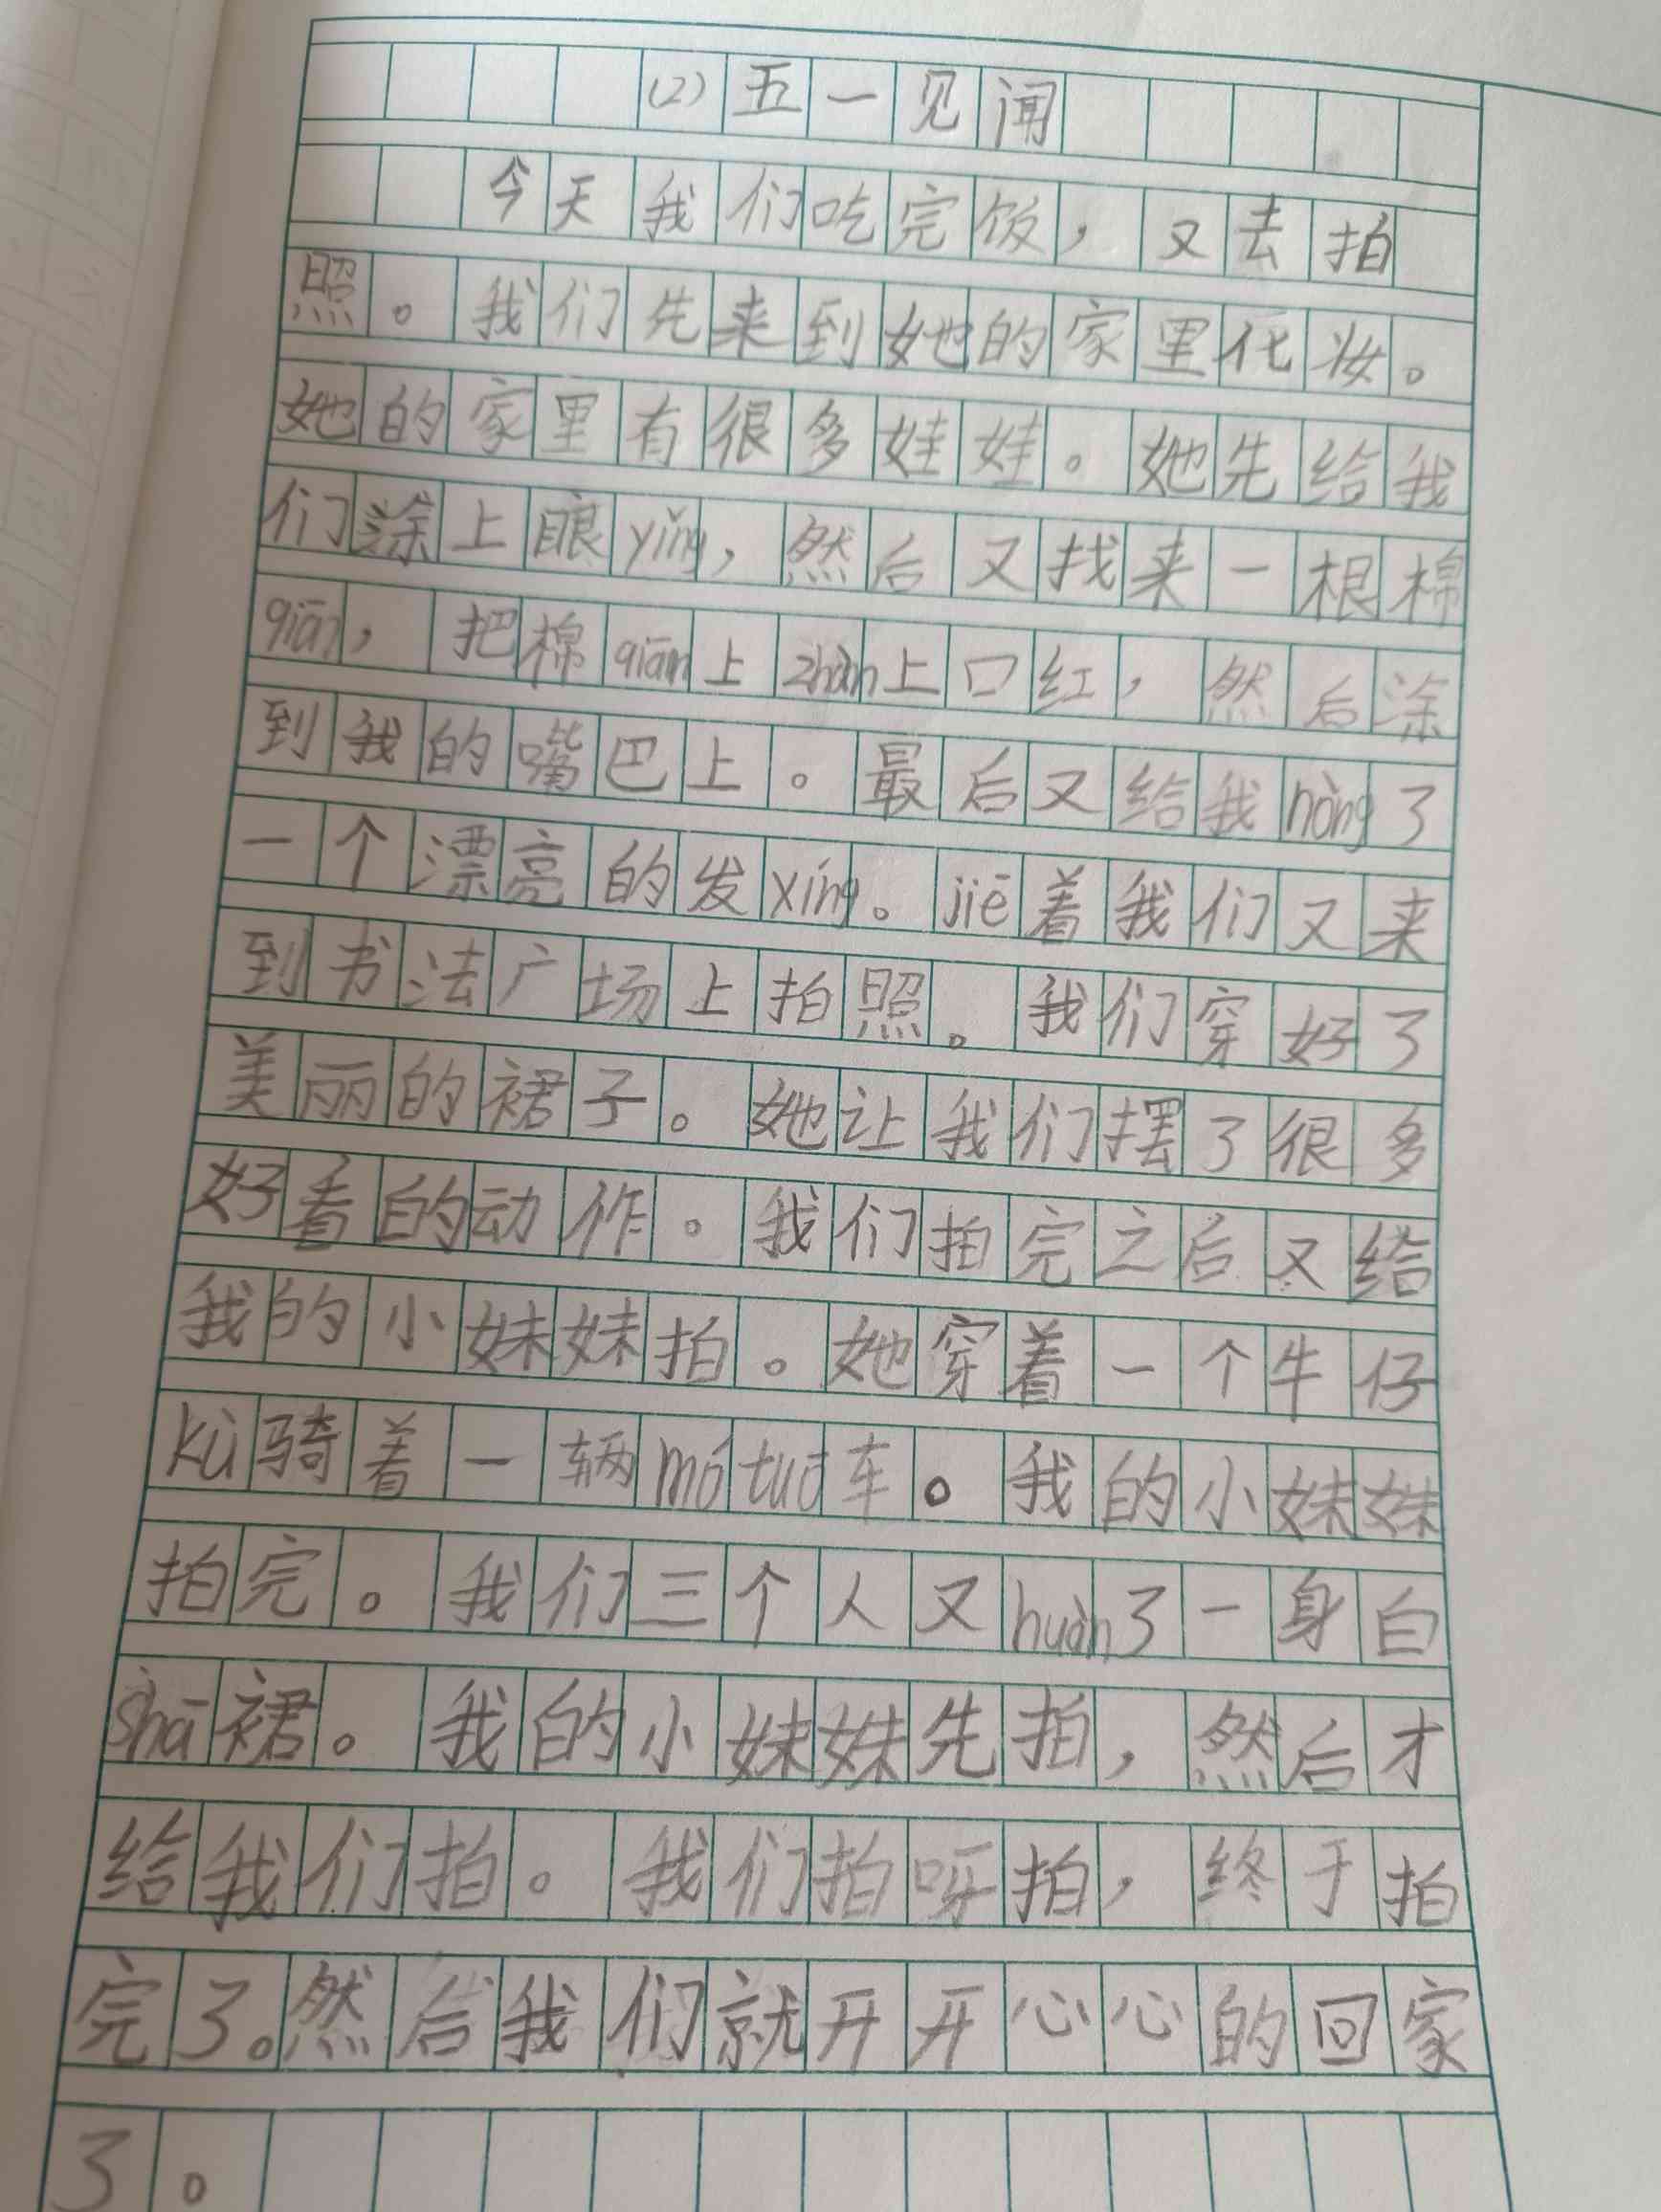 (2)五一见闻
今天我们吃完饭，又去拍
照。我们先来到她的家里化妆。
她的家里有很多娃娃。她先给我
们涂上眼yǐng，然后又找来一根棉
qiān，把棉qiān上zhàn上口红，然后涂
到我的嘴巴上。最后又给我nòng了
一个漂亮的发xíng。jiē着我们又来
到书法广场上拍照。我们穿好了
美丽的裙子。她让我们摆了很多
好看的动作。我们拍完之后又给
我的小妹妹拍。她穿着一个牛仔
kù骑着一辆mótuō车。我的小妹妹
拍完。我们三个人又huàn了一身白
shā裙。我的小妹妹先拍，然后才
给我们拍。我们拍呀拍，终于拍
完了。然后我们就开开心心的回家
了。